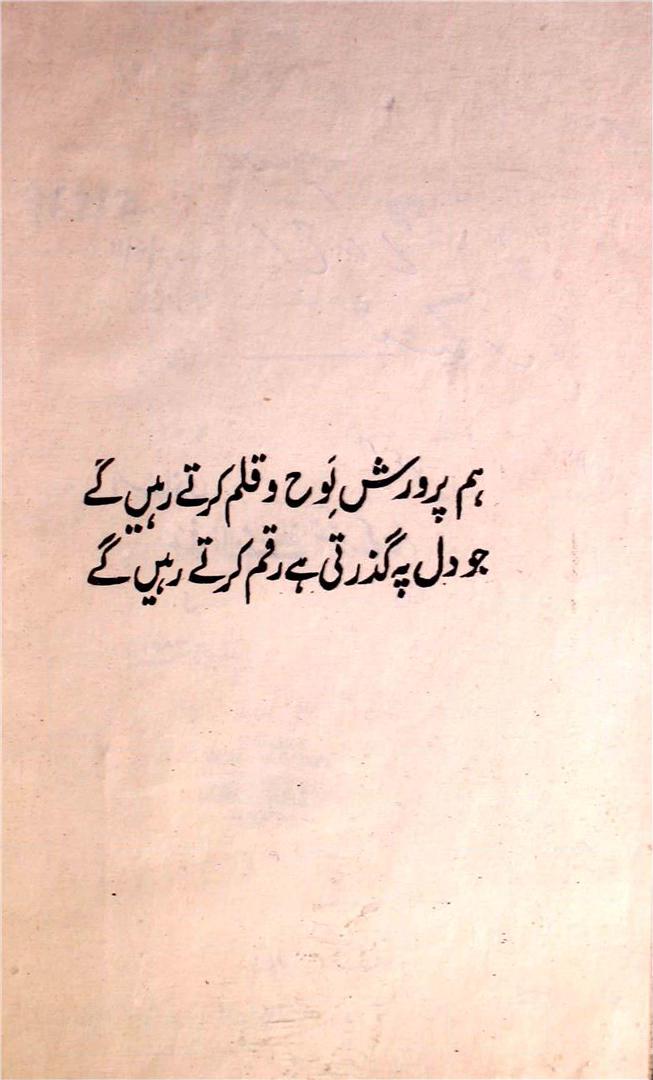 ہم پرورشِ لَوح و قلم کرتے رہیں گے
جو دل پہ گذرتی ہے رقم کرتے رہیں گے